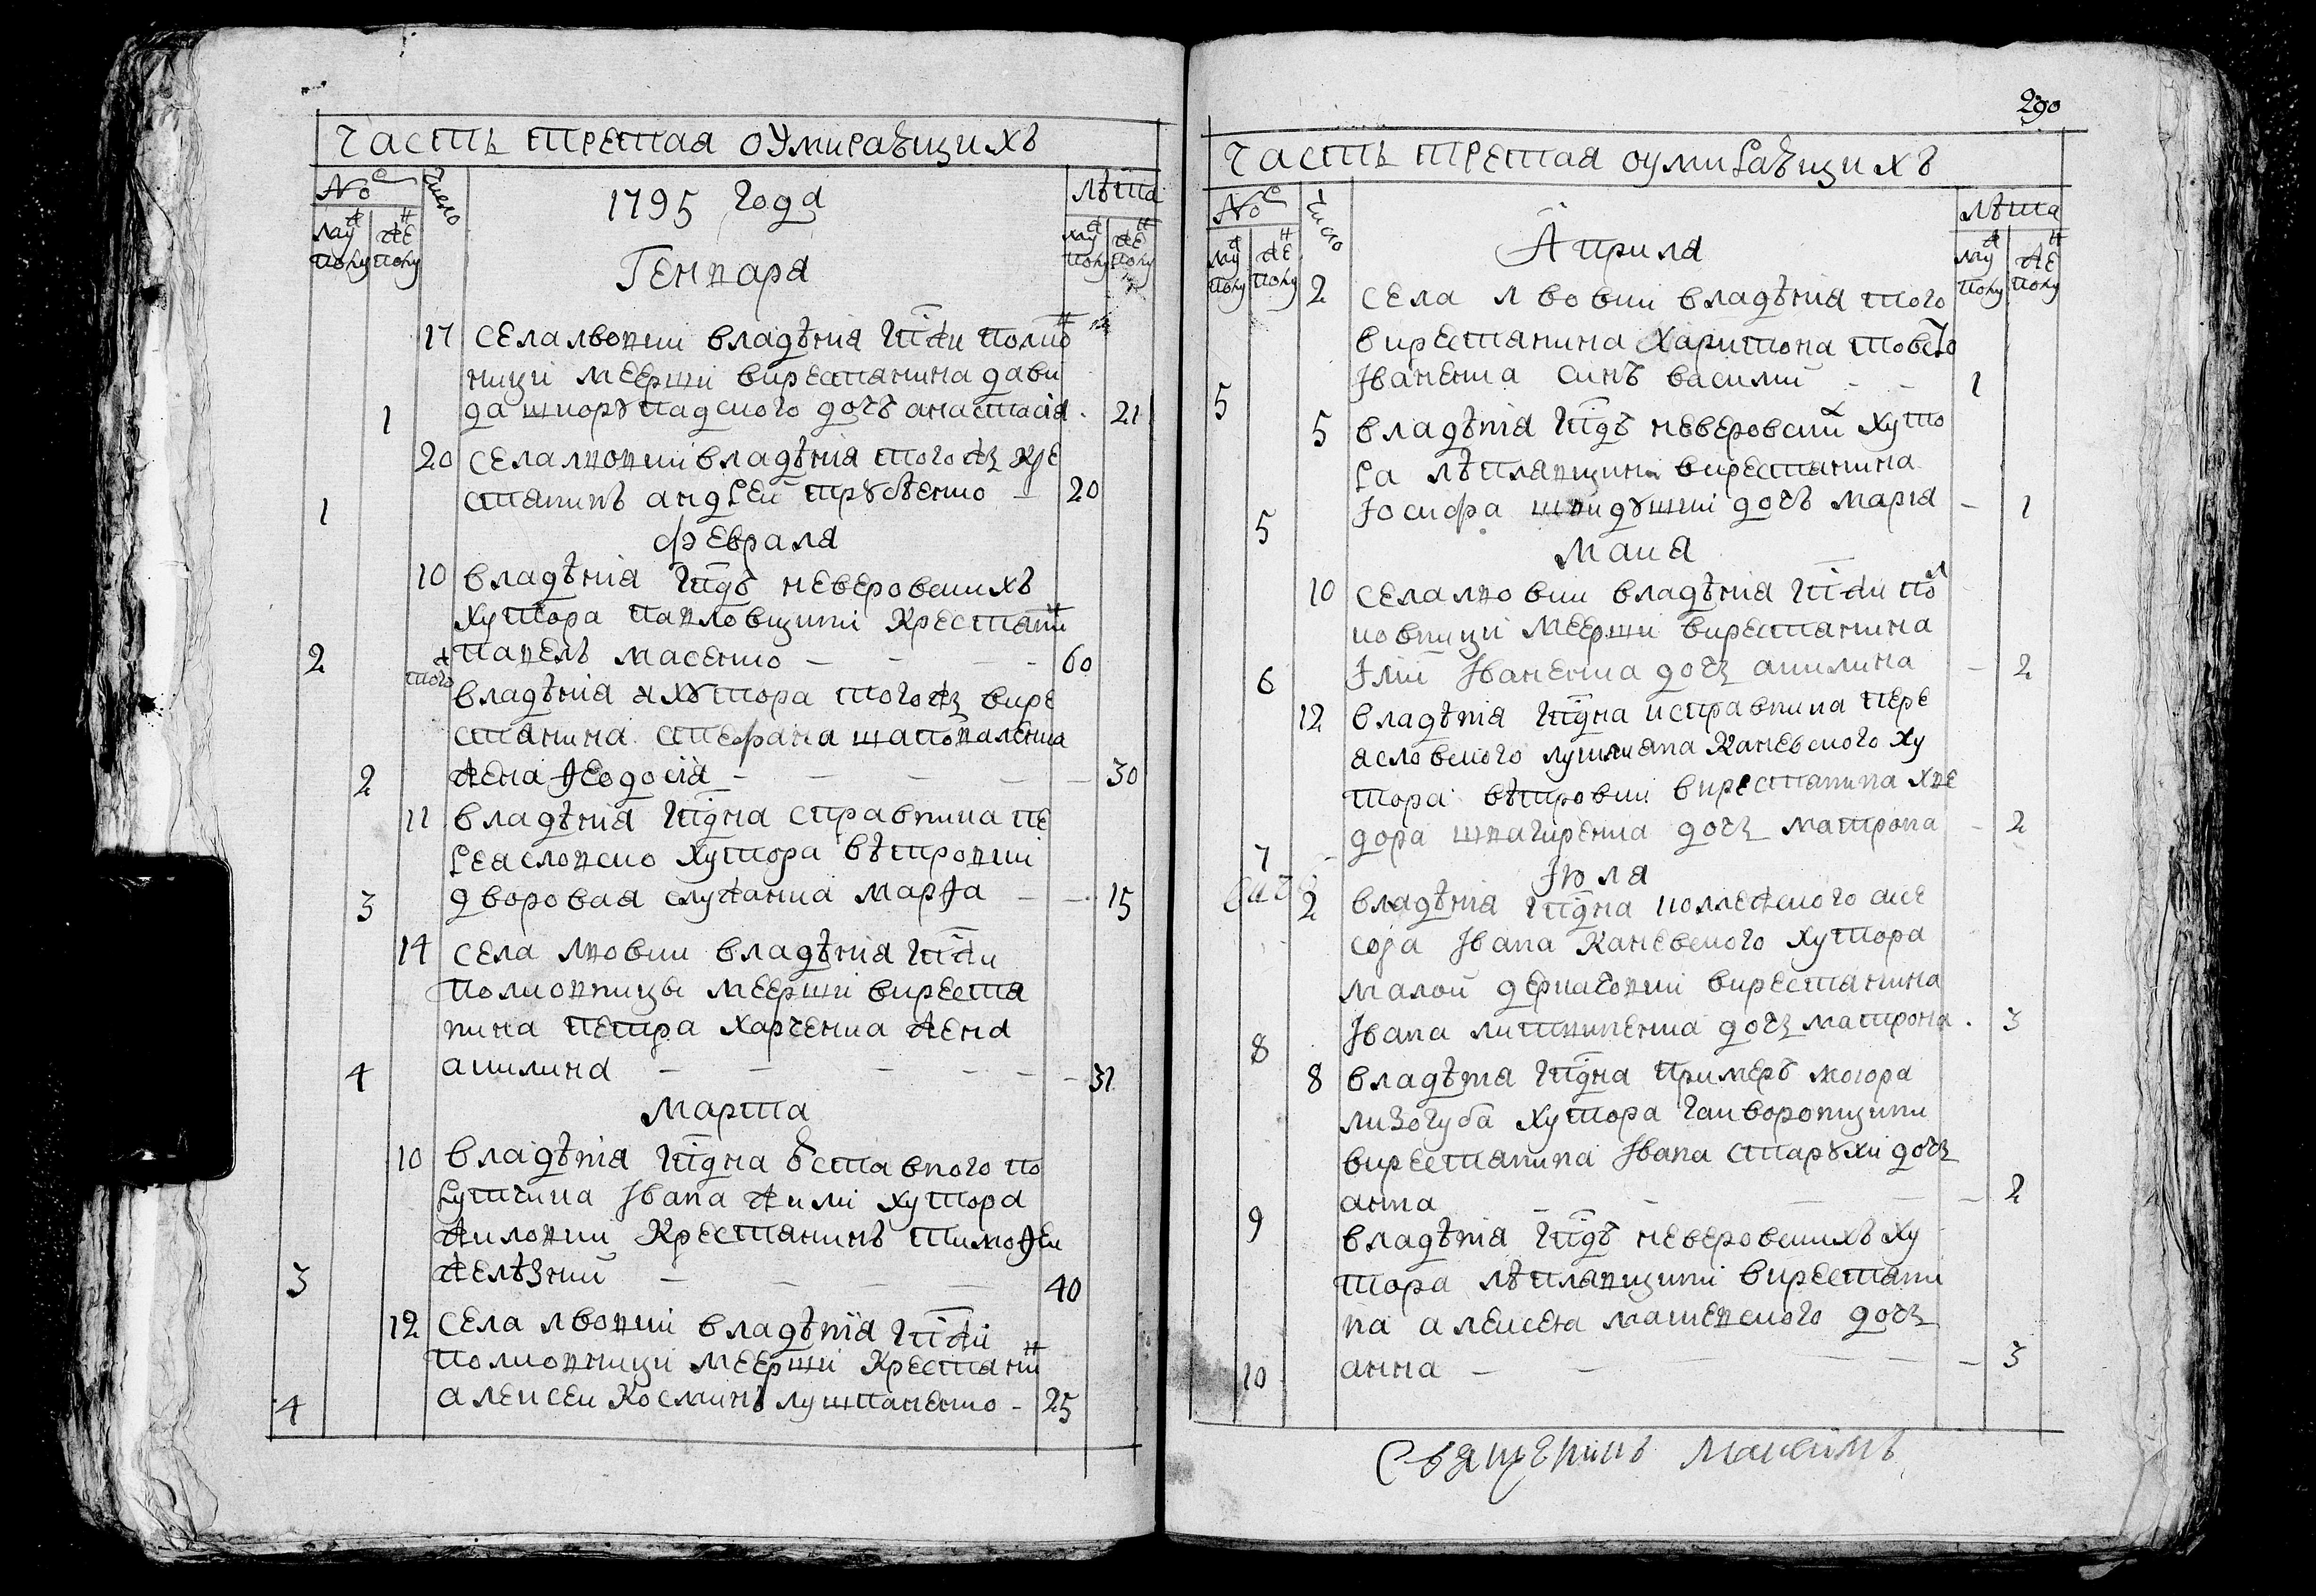 Часть третая оумираѣщихъ
№
число
1795 года
лѣта
муж полу
жен полу
муж полу
жен полу
Генваря
17 села лвовки владѣнія гпжи полков
ници меерши вкрестянина дави
1 да шкорупадского дочъ анастасія 21
20 села лвовки владѣнія тогожъ кре
1 стянинъ андрей трубѣенко 20
февраля
10 владѣнія гпдъ неверовскихъ
хутора павловщини крестянин
2 павелъ масенко 60
тогож владѣнія и хутора тогожъ вкре
стянина стефана шаповаленка
2 жена Ѳеодосія 30
11 владѣнія гпдна справника пе
реясловско хутора вѣтровки
3 дворовая служанка марѳа 15
14 села лвовки владѣнія гпжи
полковницы меерши вкрестя
нина петра харченка жена
4 акилина 31
марта
10 владѣнія гпдна уставного по
ручика Івана жили хутора
жиловки крестянинъ тимоѳеи
3 желѣзний 40
12 села лвовки владѣнія гпжи
полковници меерши крестянин
4 алексеи косминъ лушпаненко 25
290
Часть третая оумираѣщихъ
№
число
лѣта
муж полу
жен полу
муж полу
жен полу
Априля
2 села лвовки владѣнія того
вкрестянина харитона товсто
5 Іваненка синъ василий 1
5 владѣнія гпдъ неверовских хуто
ра лѣплявщини вкрестянина
5 Іосифа шкидушки дочъ марія 1
Маиа
10 села лвовки владѣнія гпжи пол
ковници меерши вкрестянина
6 Ілїи Іваненка дочъ акилина 2
12 владѣнія гпдна исправника пере
ясловского лукияна каневского ху
тора вѣтровки вкрестянина хве
7 дора шпагиренка дочъ матрона 2
Іюля
2 владѣнія гпдна коллежского асе
сора Івана каневского хутора
малой деркачовки вкрестянина
8 Івана литвиненка дочъ матрона 3
8 владѣнія гпдна примеръ маюора
лизогуба хутора гаиворонщини
вкрестянина Івана старухи дочъ
9 анна 2
владѣнія гпдъ неверовскихъ ху
тора лѣплявщини вкрестяни
на алексея машевского дочъ
10 анна 3
Священикъ Максимъ